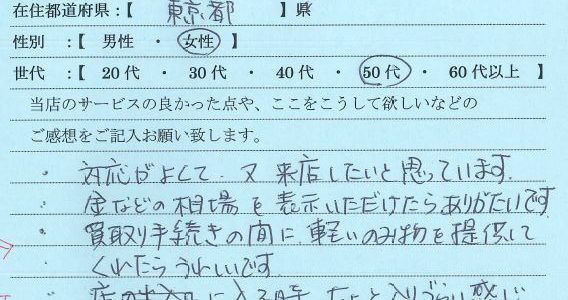 在住都道府県：【 東京都 】県
性別 ：【 男性 ・ 女性 】
世代 ：【 20代 ・ 30代 ・ 40代 ・ 50代 ・ 60代以上 】
当店のサービスの良かった点や、ここをこうして欲しいなどの
ご感想をご記入お願い致します。
・ 対応がよくて、又 来店したいと思っています。
・ 金などの相場を表示いただけたらありがたいです
・ 買取り手続きの間に、軽いのみ物を提供して
くれたらうれしいです。
・ 店の出入口に入る時、ちょっと入りづらい感じ